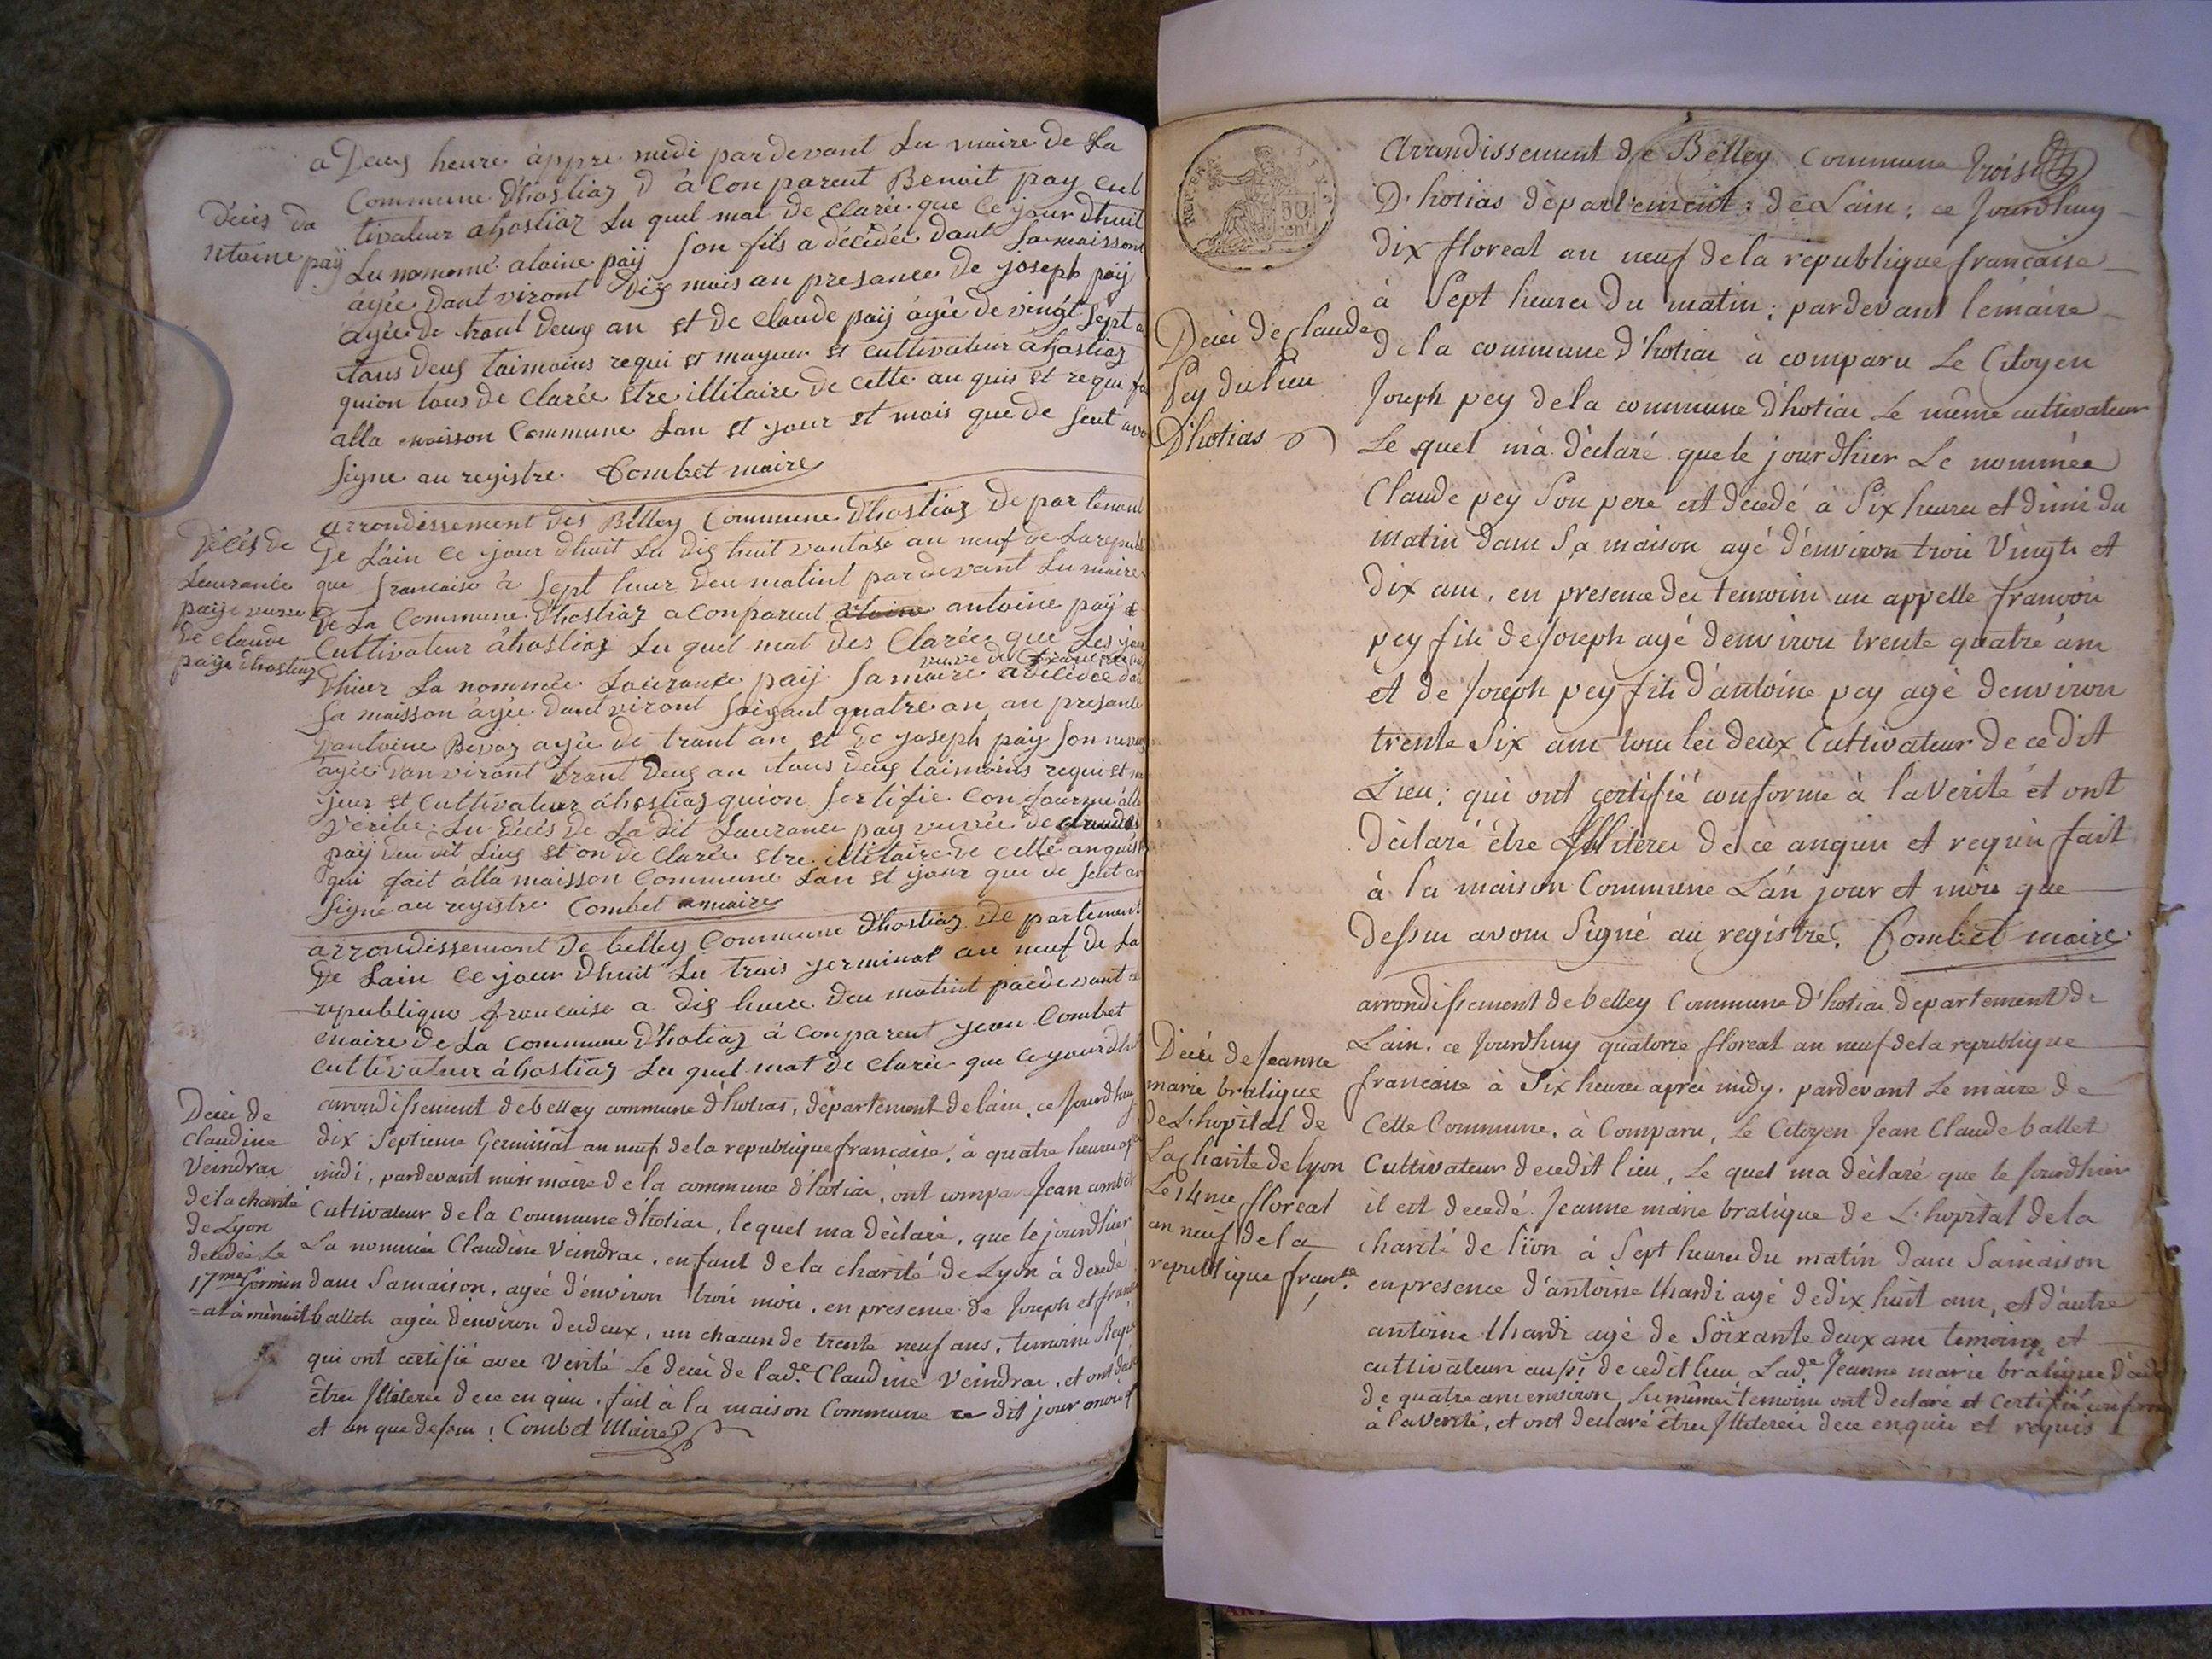 a Deus heure appre midi par devant Lu maire de La
Commune Dhostiaz D à Conparent Benoit pay cul
Décès da
ntoine paÿ
tivateur ahostiaz Lu quel mat de Clarée que le jour dhuit
Lu nomomé atoine paÿ son fils a décidée dant Samaisson
ayée dant viront Dix mois an presance de joseph paÿ
ayée de trant Deux an st de Claude paÿ âyée de vingt Sept a
tous Deus taimoins requi st mayeur st Cultivateur àhostiaz
quion tous de Clarée stre illitaire de Cette an quis st re qui fa
alla maisson Commune Lan st your st mois que de seut avo
signe au registre Combet maire
Décés de
Laurance
paÿe veuve
de Claude
paÿe dhostiaz
arrondissement des Belley Commune Dhostiaz De par temant
De Lain Ce your dhuit Lu dix huit vantose an neuf de Larepubli
que francaise à Sept heur deu matint par devant Lu maire
De La Commune Dhostiaz a Conparent atoine antoine paÿ
Cultivateur âhostiaz Lu quel mat des Clarée que Les jour
Dhier La nommée Laurance paÿ Samaire a décidée dan
sa maisson âyée Dant viront soixant quatre an an presance
Dantoine Bevoz ayée de trant an st de yoseph paÿ son neveu
âyée Dan viront trant Deus an tous deus taimoins requi st ma
jeur st Cultivateur âhostiaz quion sertifie Confourme âlla
verite Lu Décés de La dit Laurance pay veuvée de claude
paÿ deu dit Lieus st on de Clarée stre illitaire de Cette anquis st
qui fait âlla maisson Commune Lan st your que de seut av
signé au registre Combet maire
arrondissemant De belley Commune Dhostiaz De partement
De Lain Ce jour dhuit Lu trois yerminal an neuf de La
republique francaise a dix heure deu matint par devant
maire de La Commune D'hotiaz à Conparent yean Combet
Cultivateur àhostiaz Lu quel mat de Clarée que Ce your dh
Decei de
Claudine
Veindrac
de la charité
de Lyon
decedée Le
17me Germin
=al à minuit
arrondissement de belley commune d'hotias, département de lain, ce Jourdhuy
dix Septieme Germinal an neuf de la republique francaise, à quatre heures ap
midi, pardevant nous maire de la commune d'hotiai, ont comparu Jean combet
Cultivateur de la Commune d'hotiai, lequel ma déclaré, que le jourdhier
La nommée Claudine Veindrac, enfant de la charité de Lyon à decedé
dans Samaison, agée d'environ trois mois, en presence de Joseph et franc
ballet agés denviron desdeux, un chacun de trente neuf ans, temoins Requi
qui ont certifié avec Verité Le decés de lade. Claudine Veindrac, et ont décl
être Illiterei de ce enquis, fait à la maison Commune ce dit jour mois
et an que dessus : Combet Maire
Arrondissement De Belley Commune trois
D'hotias département de Lain ; ce Jourdhuy
dix floreal an neuf de la republique francaise
à Sept heures du matin ; pardevant le maire
Decei de Claude
Pey du lieu
D'hotias
de la commune d'hotiai à comparu Le Citoyen
Joseph pey de la commune d'hotiai Le même cultivateur
Le quel m'à déclaré que le jourdhier Le nommée
Claude pey Son pere est decedé à Six heures et dimi du
matin dans Sa maison agé d'environ trois Vingts et
dix ans, en presence des temoins un appellé francois
pey fils de Joseph agé denviron trente quatre ans
et de Joseph pey fils d'antoine pey agé denviron
trente Six ans tous les deux Cultivateur de ce dit
Lieu ; qui ont certifié conforme à la Verité et ont
déclaré être Illiterei de ce anquis et requis fait
à la maison Commune L'an jour et mois que
dessus avons Signé au registre. Combet maire
Decés de Jeanne
marie bratique
de L'hopital de
La Charité de lyon
Le 14me floreal
an neuf de la
republique franse.
arrondissement de belley Commune D'hotiai departement de
Lain, ce Jourdhuy quatorze floreal an neuf de la republique
francaise à Six heures aprei midy. pardevant Le maire de
Cette Commune, à Comparu, Le Citoyen Jean Claude ballet
Cultivateur de cedit lieu, Le quel ma déclaré que le Jourdhier
il est decedé Jeanne marie bratique de L'hopital de la
charité de lion à Sept heures du matin dans Samaison
en presence d'antoine thardi agé de dix huit ans, et d'autre
antoine thardi agé de Soixante deux ans temoins, et
cultivateur aussi de cedit lieu, Lade. Jeanne marie bratique d'age
de quatre ans environ, Les mêmes temoins ont declaré et Certifié conforme
à la verité, et ont declaré être Illiterei de ce enquis et requis